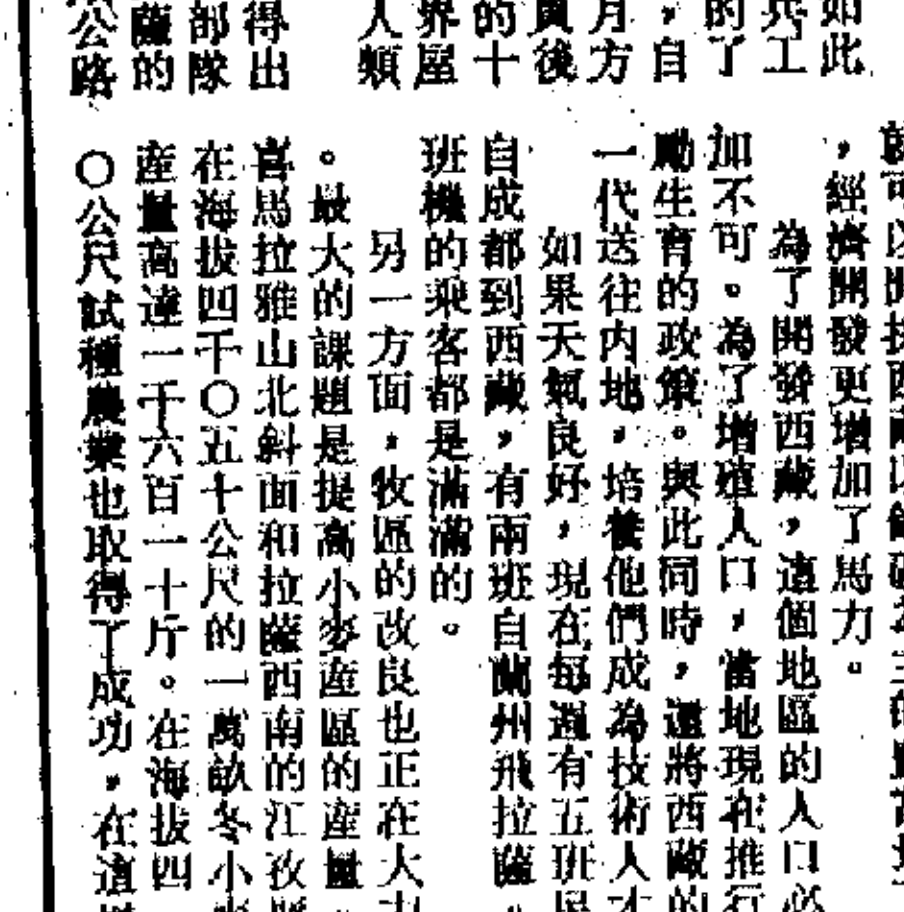 如此
兵工
的了
，自
月方
員後
的十
界屋
人類
得出
部隊
薩的
公路
，經濟開發更增加了馬力。
為了開發西藏，這個地區的人口必
加不可。為了增殖人口，當地現在推行
勵生育的政策。與此同時，還將西藏的
一代送往內地，培養他們成為技術人才
如果天氣良好，現在每週有五班
自成都到西藏，有兩班自蘭州飛拉薩。
班機的乘客都是滿滿的。
另一方面，牧區的改良也正在大
。最大的課題是提高小麥產區的產量。
喜馬拉雅山北斜面和拉薩西南的江孜
在海拔四千〇五十公尺的一萬畝冬小
產量高達一千六百一十斤。在海拔四
〇公尺試種農業也取得了成功，在這